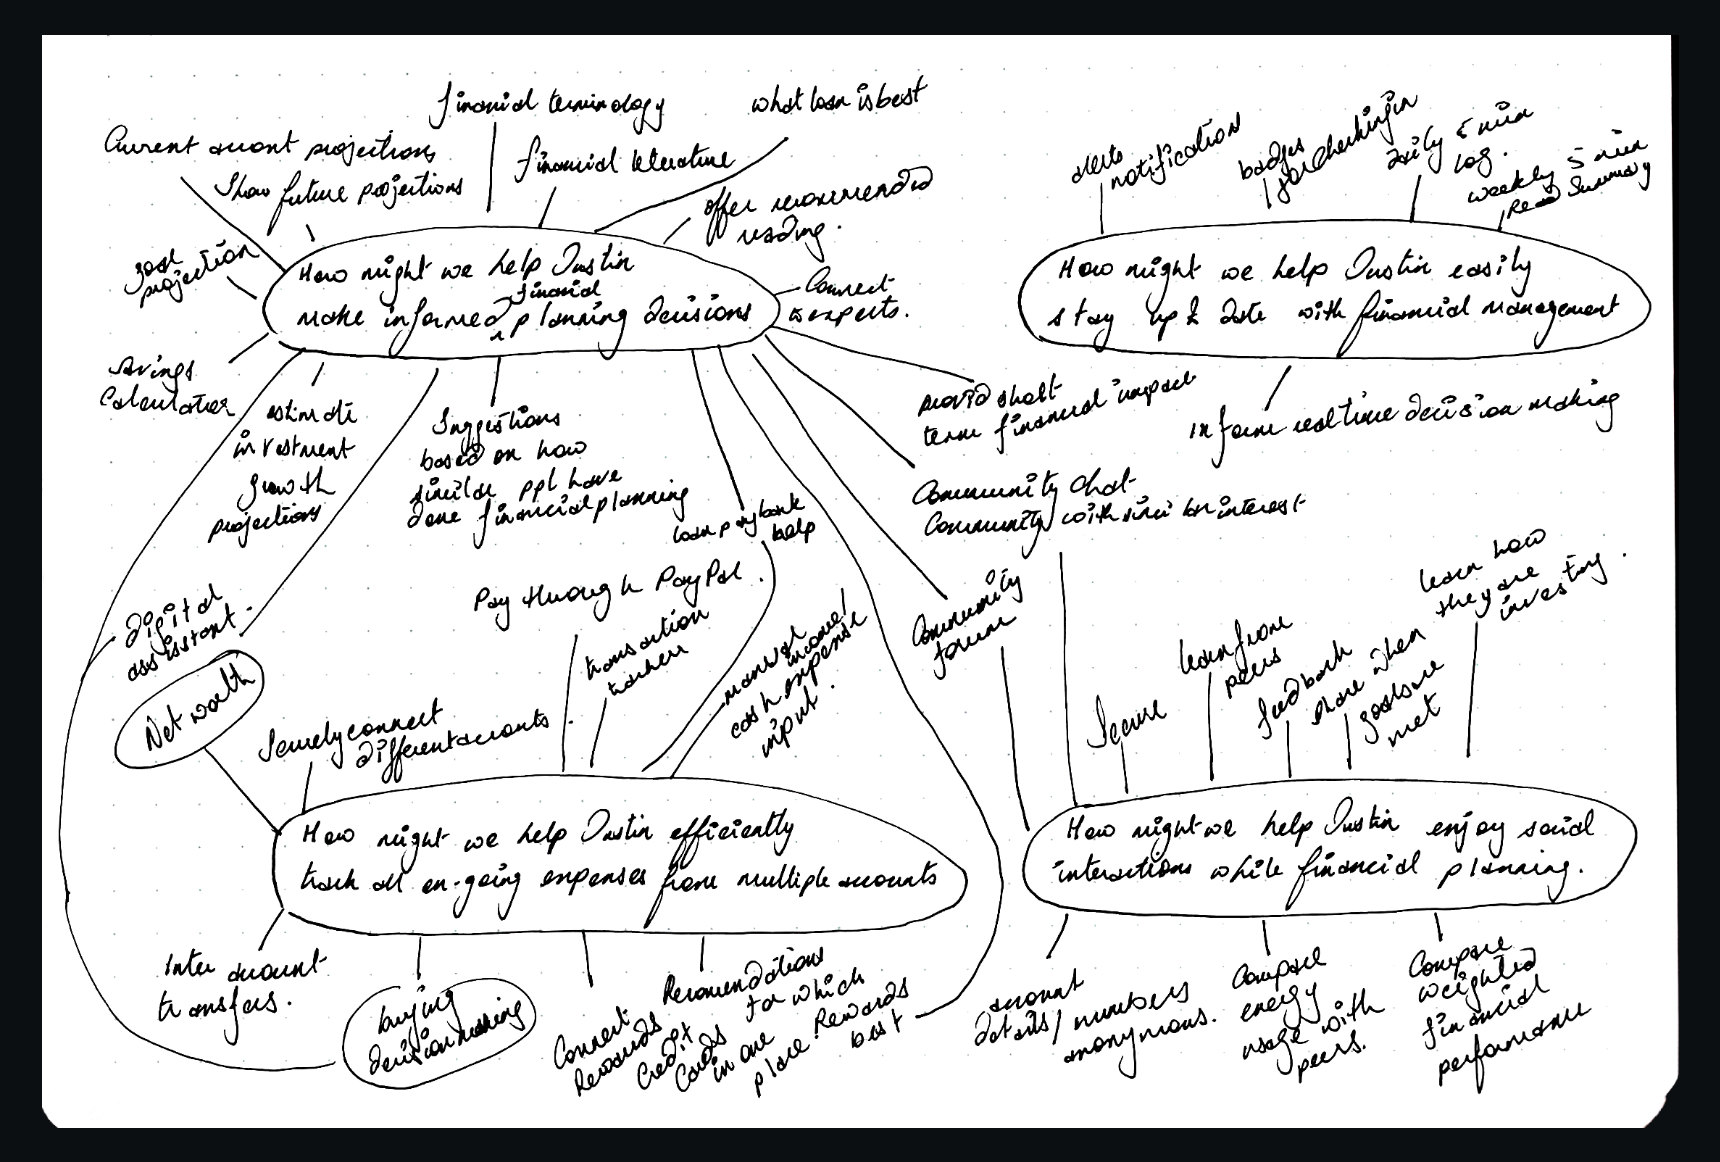 financial terminology
what loan is best
Current account projections
Show future projections
financial literature
offer recommended
reading.
goal
projection
How might we help Justin
financial
make informed planning decisions
Connect
experts.
Savings
Calculator
estimate
investment
growth
projections
Suggestions
based on how
similar ppl have
done financial planning
loan payback
help
provid short
term financial impact
Community chat
Community with similar interest
Community
forum
digital
assistant.
alerts
notification
badges
for checking in
daily 5 min
log.
weekly 5 min
Read Summary
How might we help Justin easily
stay up to date with financial management
inform real time decision making
Net worth
Securely connect
different accounts.
Pay through PayPal.
transaction
tracker
manual
income/
cash expense
input.
How might we help Justin efficiently
track all on-going expenses from multiple accounts
Inter account
transfers.
buying
decision making
Connect
Rewards
Credit
Cards
in one
place
Recomendations
for which
Rewards
best
Secure
learn from
peers
feedback
share when
goals are
met
learn how
they are
investing.
How might we help Justin enjoy social
interactions while financial planning.
account
details/numbers
anonymous.
Compare
energy
usage with
peers.
Compare
weighted
financial
performance